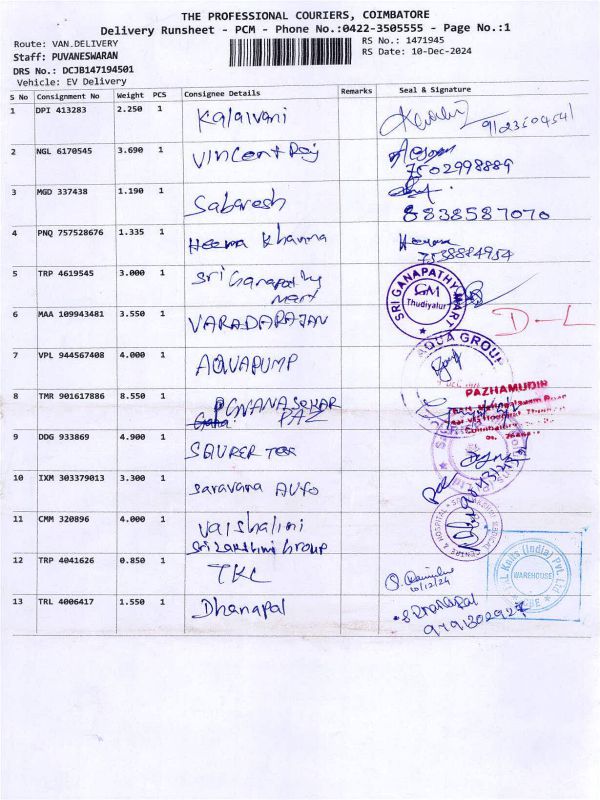 THE PROFESSIONAL COURIERS, COIMBATORE
Delivery Runsheet - PCM - Phone No.:0422-3505555 - Page No.:1
Route: VAN.DELIVERY RS No.: 1471945
Staff: PUVANESWARAN RS Date: 10-Dec-2024
DRS No.: DCJB147194501
Vehicle: EV Delivery
S No Consignment No Weight PCS Consignee Details Remarks Seal & Signature
1 DPI 413283 2.250 1 Kalaivani
2 NGL 6170545 3.690 1 Vincent Raj
7502998889
3 MGD 337438 1.190 1 Sabaresh
8838587070
4 PNQ 757528676 1.335 1 Heema Khanna Heema
7538884954
5 TRP 4619545 3.000 1 Sri Ganapathy
mart
SRI GANAPATHY MART
GM
Thudiyalur
6 MAA 109943481 3.550 1 VARADARAJAN D-L
7 VPL 944567408 4.000 1 AQUAPUMP AQUA GROUP
8 TMR 901617886 8.550 1 GNANASEKAR
PAZ
PAZHAMUDIR
9 DDG 933869 4.900 1
10 IXM 303379013 3.300 1 Saravana AUTO
11 CMM 320896 4.000 1 Vaishalini
Sri Lakshmi Group
12 TRP 4041626 0.850 1 TKL
10/12/24
Knits (India) Pvt. Ltd
WAREHOUSE
13 TRL 4006417 1.550 1 Dhanapal